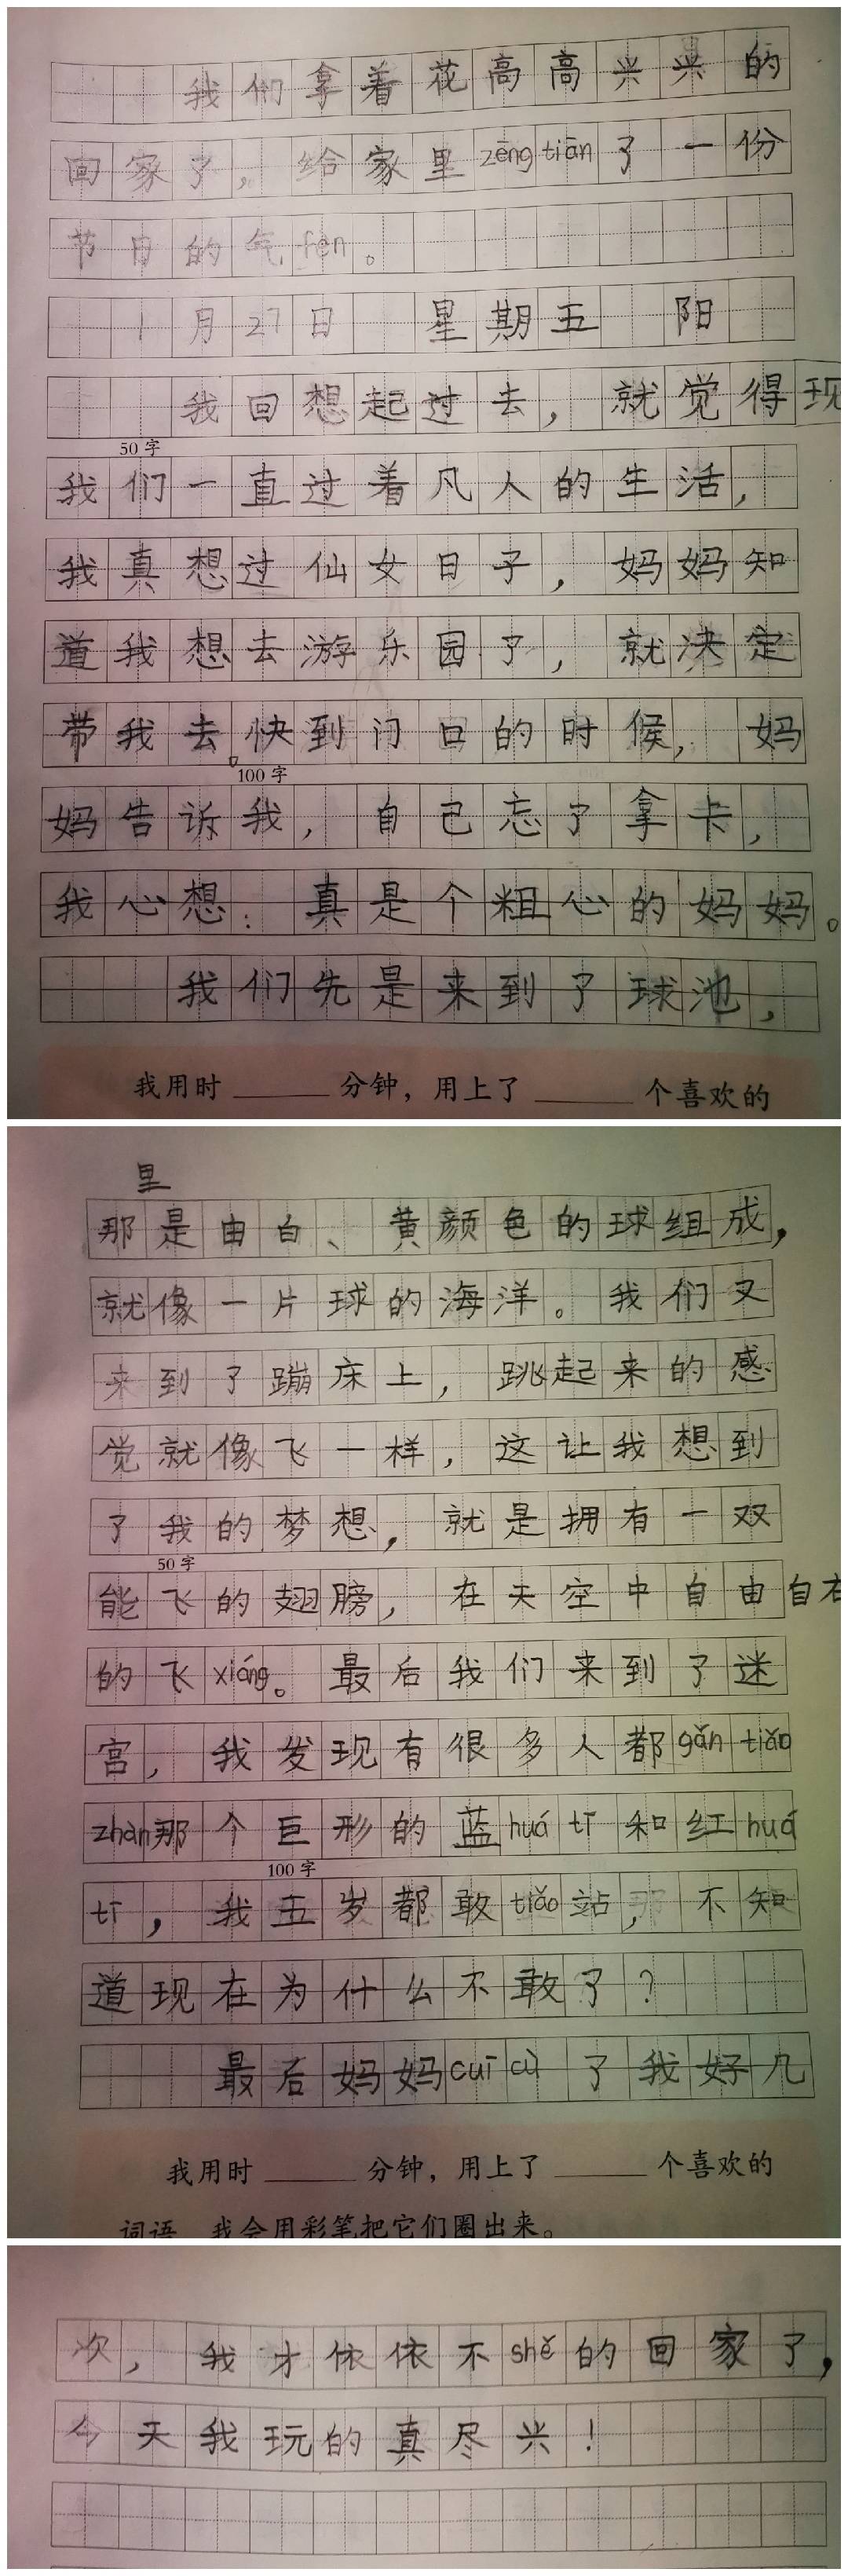 我们拿着花高高兴兴的
回家了，给家里zēng tiān了一份
节日的气fēn。
1月27日 星期五 阳
我回想起过去，就觉得现
50字
我们一直过着凡人的生活，
我真想过仙女日子，妈妈知
道我想去游乐园了，就决定
带我去。快到门口的时候，妈
100字
妈告诉我，自己忘了拿卡，
我心想：真是个粗心的妈妈。
我们先是来到了球池，
我用时 分钟，用上了 个喜欢的
里
那是由白、黄颜色的球组成，
就像一片球的海洋。我们又
来到了蹦床上，跳起来的感
觉就像飞一样，这让我想到
了我的梦想，就是拥有一双
50字
能飞的翅膀，在天空中自由自在
的飞xiáng。最后我们来到了迷
宫，我发现有很多人都gǎn tiǎo
zhàn那个巨形的蓝huá tī和红huá
100字
tī，我五岁都敢tiǎo站，不知
道现在为什么不敢了？
最后妈妈cuī cù了我好几
我用时 分钟，用上了 个喜欢的
词语，我会用彩笔把它们圈出来。
次，我才依依不shě的回家了，
今天我玩的真尽兴！